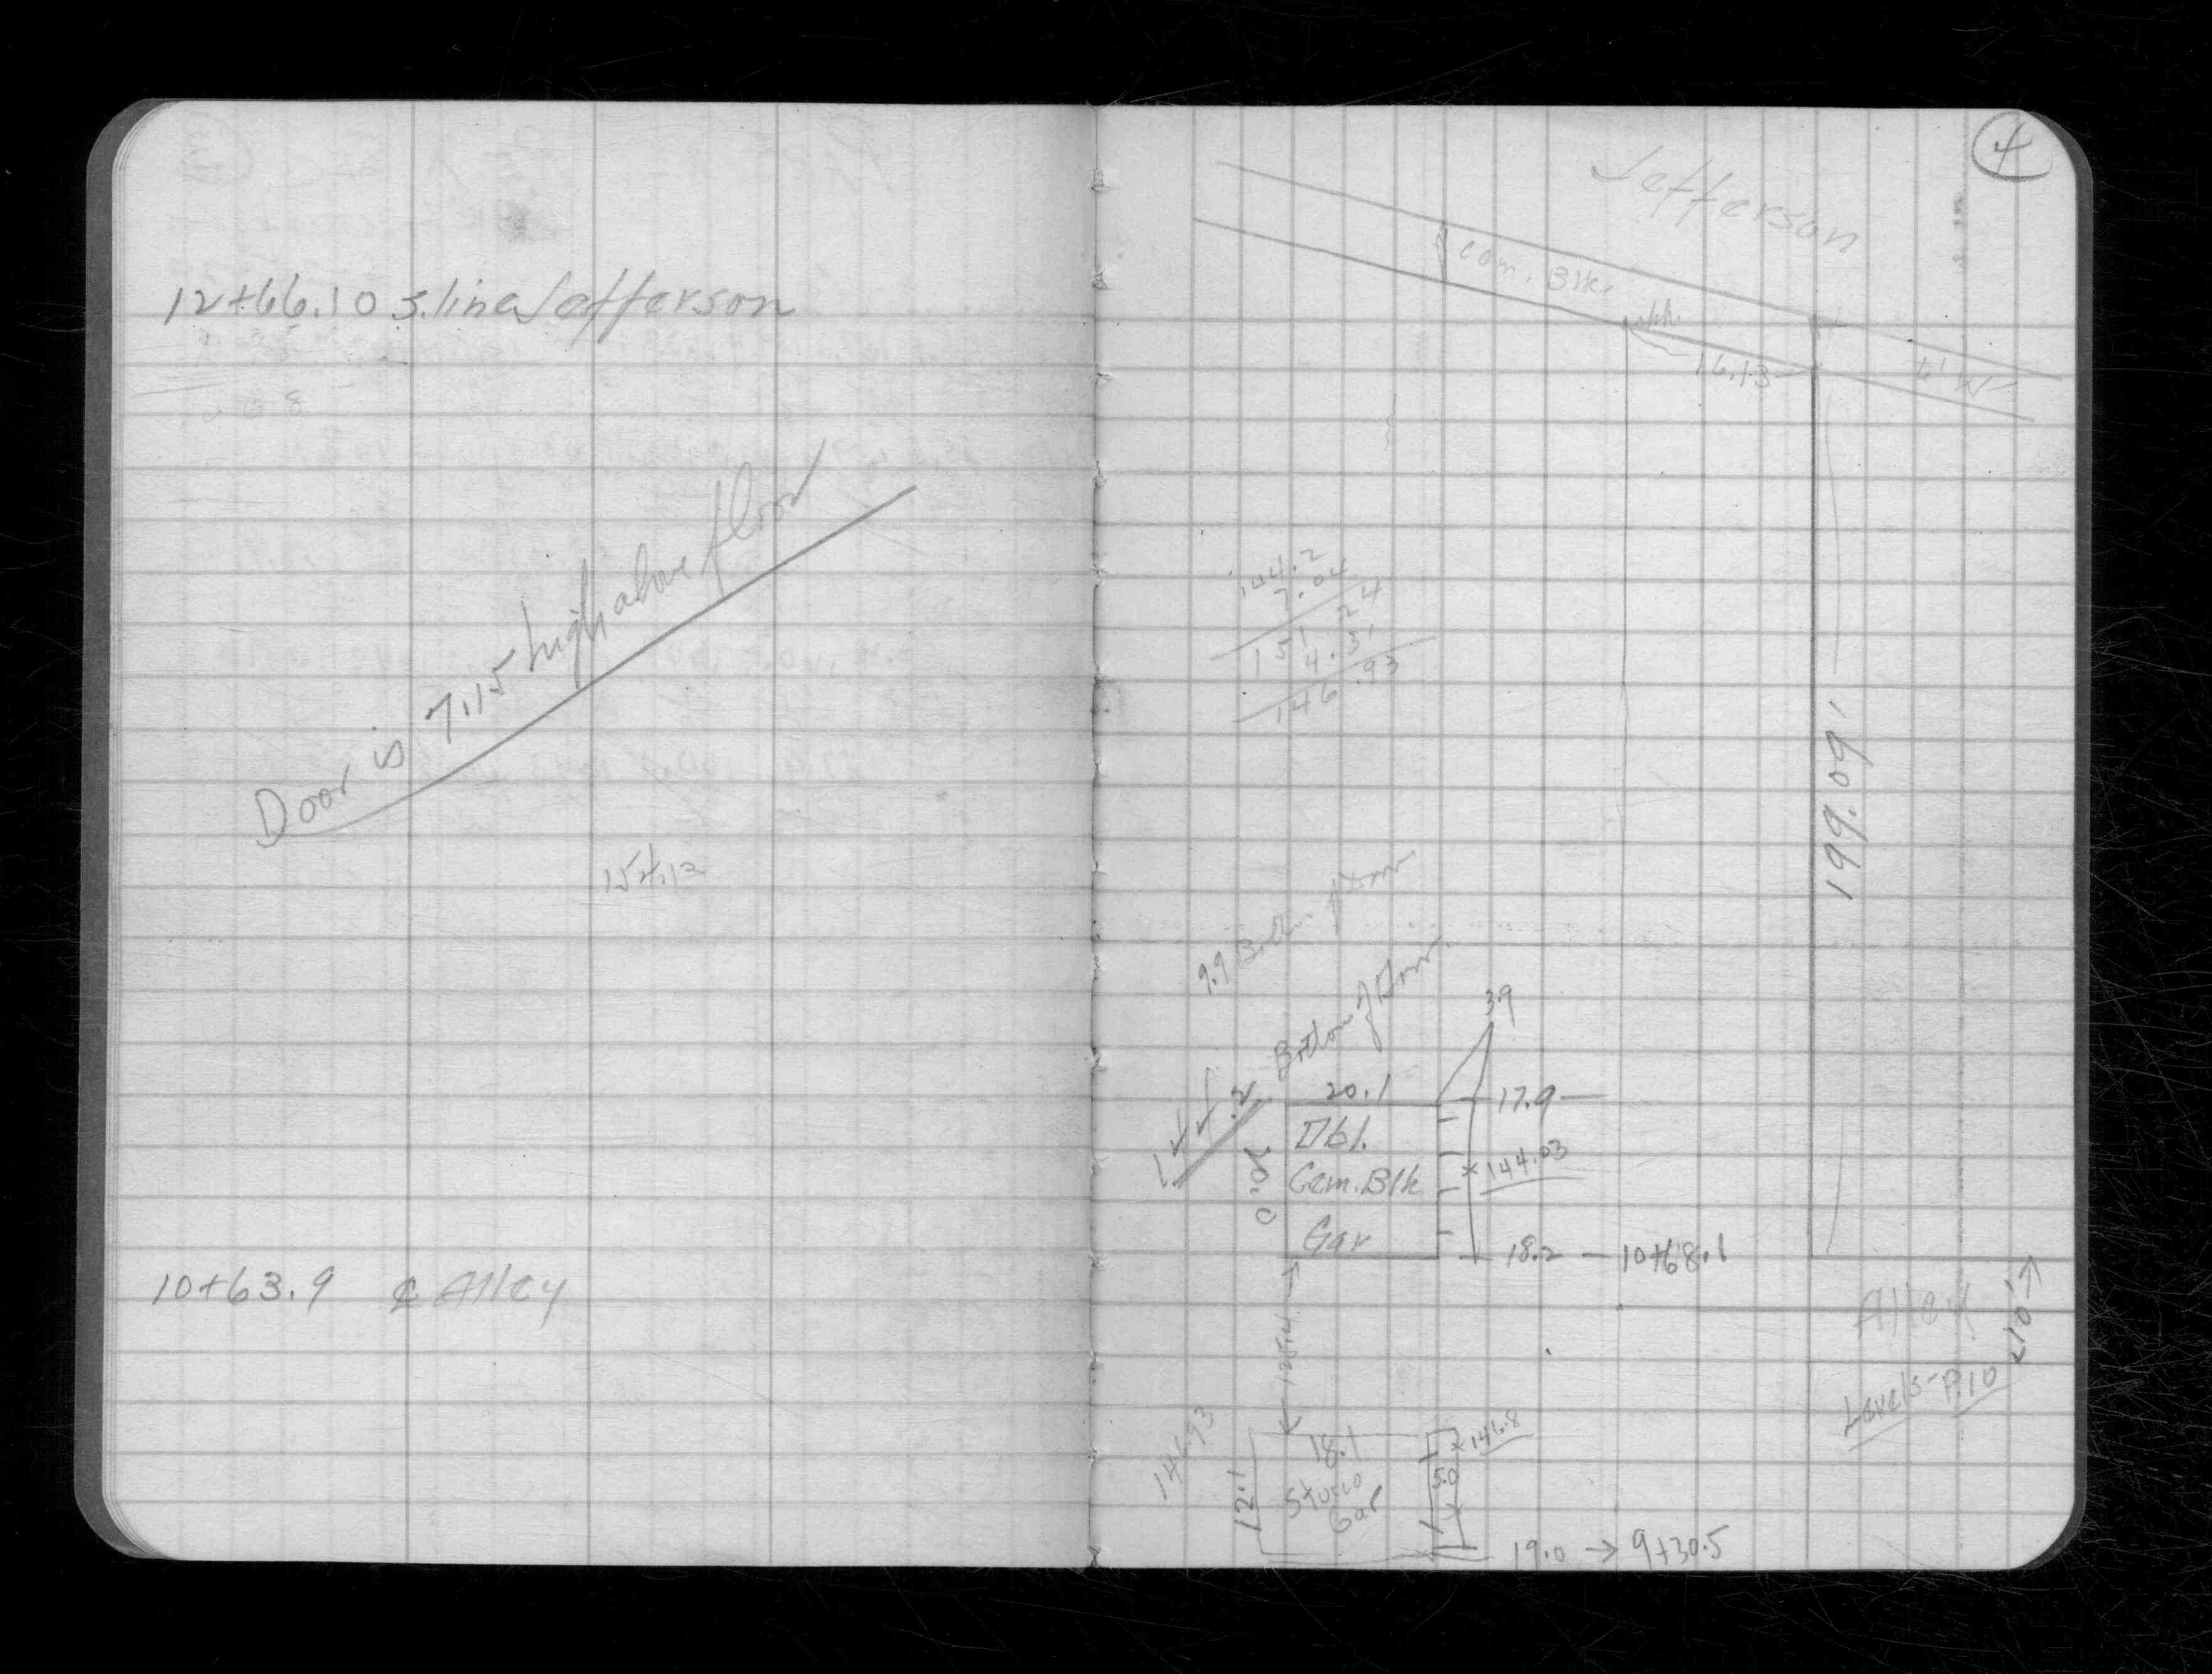 12+66.10 S. line Jefferson
Door is 7.15 high above floor
10+63.9 ₵ Alley
4
Jefferson
Cem. Blk.
16.13
6' W
144.2
7.04
151.24
4.31
146.93
199.09'
9.9 Bottom of Door
Bottom of Door
3.9
20.1
17.9
Dbl.
Cem. Blk
Gar
20.0
144.03
18.2 — 10+68.1
Alley
10'
Levels - P.10
146.93
18.1
Stucco
Gar
12.1
5.0
146.8
19.0 → 9+30.5